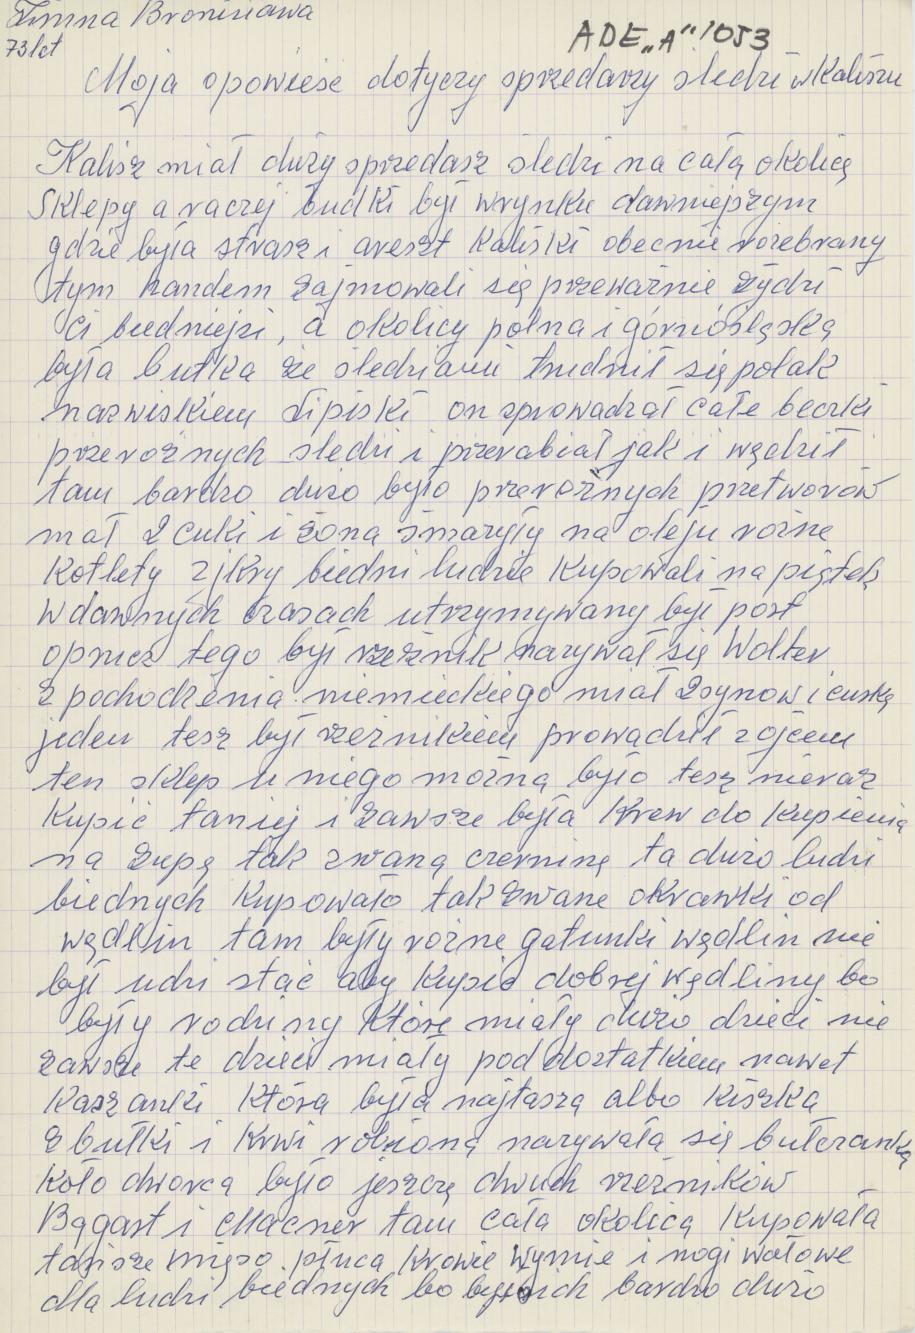 Bronisława
73 let
ADE „A" 1053
Moja opowieść dotyczy sprzedarzy śledzi w Kaliszu
Kalisz miał duży sprzedasz śledzi na całą okolicę
Sklepy a raczej budki był w rynku dawniejszym
gdzie była strasz i areszt Kaliski obecnie rozebrany
tym handem zajmowali się przeważnie żydzi
Ci biedniejsi, a okolicy polna i górnośląską
była butka ze śledziami trudnił się polak
nazwiskiem Lipiski on sprowadzał całe beczki
przerożnych śledzi i przerabiał jak i wędził
tam bardzo dużo było przerożnych przetworów
mał 2 cuki i żona smaryły na oleju rożne
kotlety z jkry biedni ludzie kupowali na piątek
w dawnych czasach utrzymywany był post
oprucz tego był rzeźnik nazywał się Wolter
z pochodzenia niemieckiego miał 2 synow i curkę
jeden tesz był rzeźnikiem prowadził z ojcem
ten sklep u niego możną było tesz nieraz
Kupić taniej i zawsze była Krew do kupienia
na zupę tak zwaną czerninę ta dużo ludzi
biednych Kupowało tak zwane okrawki od
wędlin tam były rożne gatunki wędlin nie
był udzi stać aby kupić dobrej wędliny bo
były rodziny które miały dużo dzieci nie
zawsze te dzieci miały pod doztatkiem nawet
Kaszanki która była najtaszą albo kiszką
z bułki i krwi robioną nazywała się bułczanką
Koło dworcą było jeszczę dwuch rzeźników
Bągart i Macner tam cała okolicą kupowała
tańsze mięso płuca Krowie wymie i nogi wołowe
dla ludzi biednych bo było ich bardzo dużo